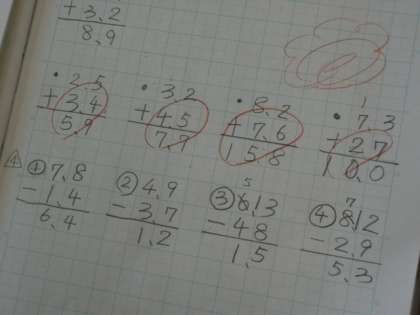 +3.2
8.9
1
• 2.5 • 3.2 • 8.2 • 7.3
+3.4 +4.5 +7.6 +2.7
5.9 7.7 15.8 10.0
5 7
4 ①7.8 ②4.9 ③6.13 ④8.12
-1.4 -3.7 -4.8 -2.9
6.4 1.2 1.5 5.3